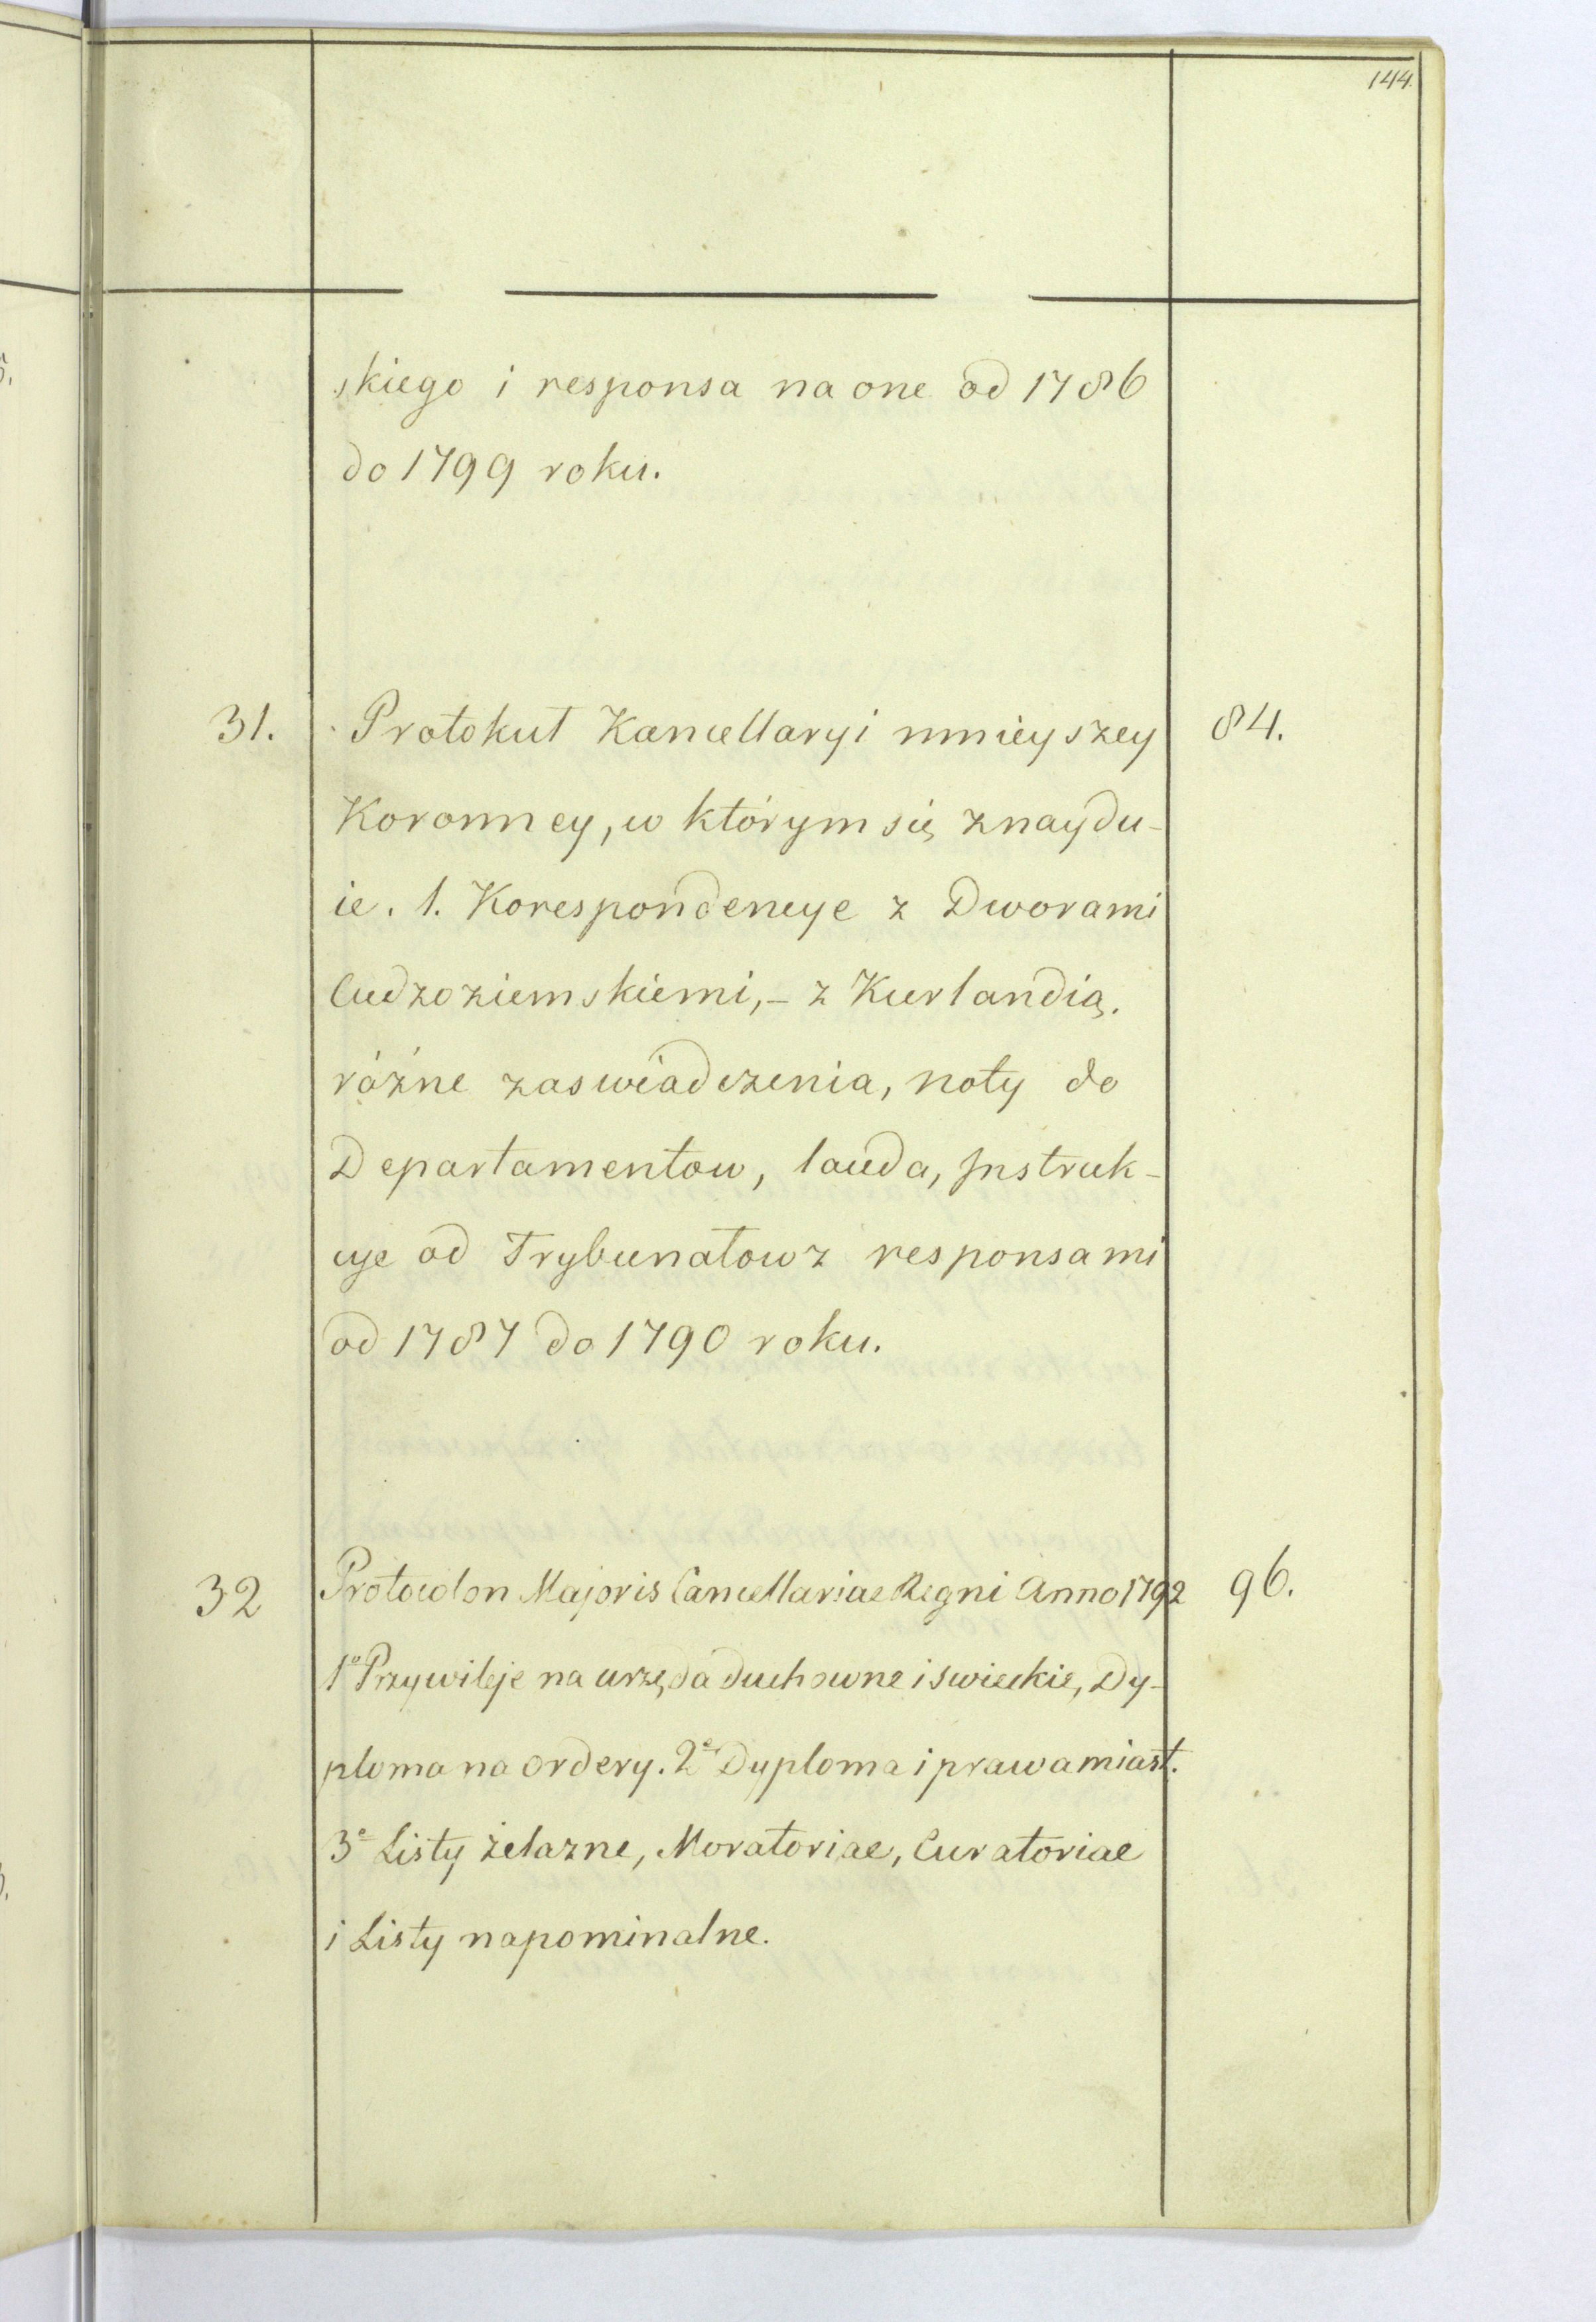 144.
skiego i responsa na one od 1786
do 1799 roku.
31. Protokuł Kancellaryi mnieyszey 84.
Koronney, w którym się znaydu-
ie. 1. Korespondencye z Dworami
Cudzoziemskiemi, - z Kurlandią.
różne zaswiadczenia, noty do
Departamentow, lauda, Instruk-
cye od Trybunałow z responsami
od 1787 do 1790 roku.
32 Protocolon Majoris Cancellariae Regni Anno 1792 96.
1º Przywileje na urzęda duchowne i swieckie, Dy-
ploma na ordery. 2º Dyploma i prawa miast.
3º Listy żelazne, Moratoriae, Curatoriae
i Listy napominalne.